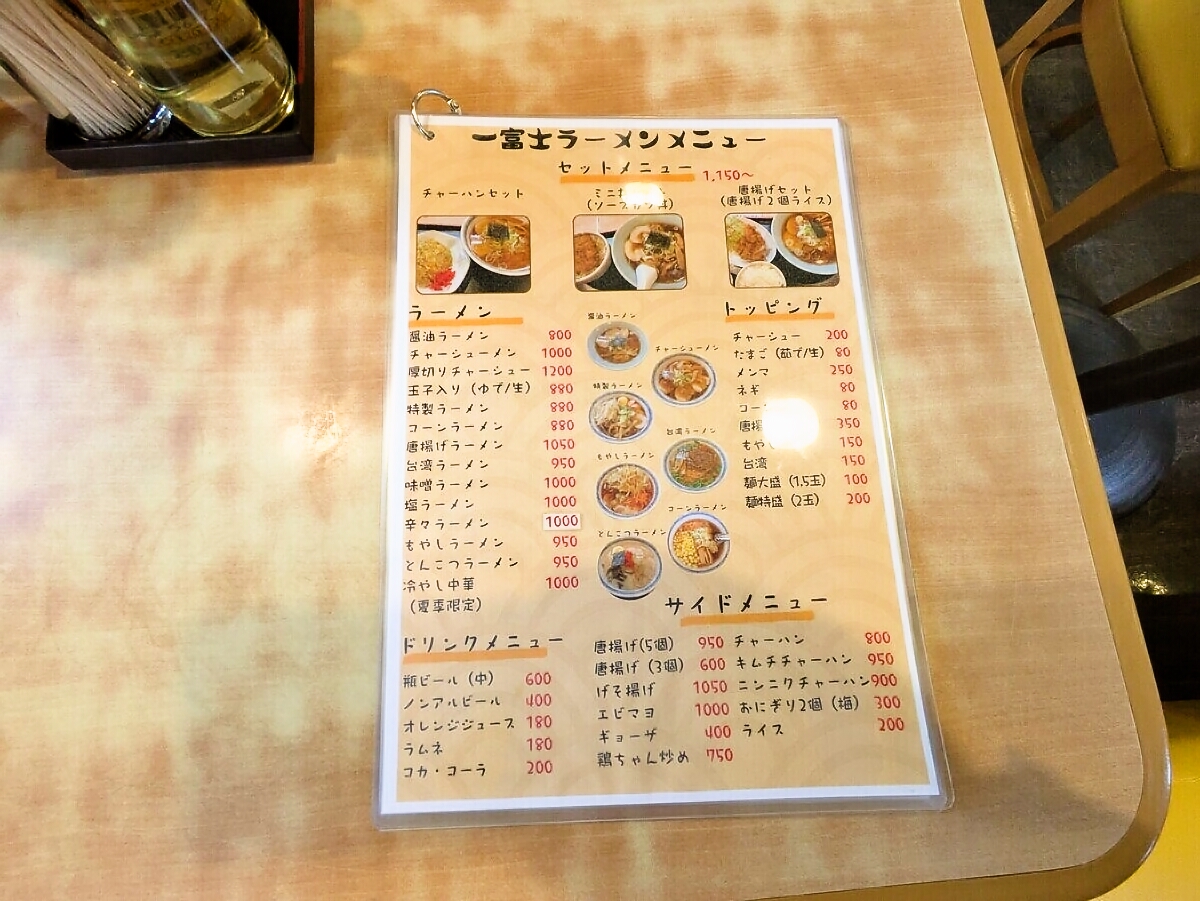 一富士ラーメンメニュー
セットメニュー 1,150～
チャーハンセット
ミニ
(ソースカツ丼)
唐揚げセット
(唐揚げ2個ライス)
ラーメン
醤油ラーメン 800
チャーシューメン 1000
厚切りチャーシュー 1200
玉子入り（ゆで/生） 880
特製ラーメン 880
コーンラーメン 880
唐揚げラーメン 1050
台湾ラーメン 950
味噌ラーメン 1000
塩ラーメン 1000
辛々ラーメン 1000
もやしラーメン 950
とんこつラーメン 950
冷やし中華 1000
（夏季限定）
醤油ラーメン
チャーシューメン
特製ラーメン
台湾ラーメン
もやしラーメン
コーンラーメン
とんこつラーメン
トッピング
チャーシュー 200
たまご（茹で/生） 80
メンマ 250
ネギ 80
コー 80
唐揚 350
もやし 150
台湾 150
麺大盛（1.5玉） 100
麺特盛（2玉） 200
ドリンクメニュー
瓶ビール（中） 600
ノンアルビール 400
オレンジジュース 180
ラムネ 180
コカ・コーラ 200
サイドメニュー
唐揚げ(5個) 950
唐揚げ（3個） 600
げそ揚げ 1050
エビマヨ 1000
ギョーザ 400
鶏ちゃん炒め 750
チャーハン 800
キムチチャーハン 950
ニンニクチャーハン 900
おにぎり2個（梅） 300
ライス 200